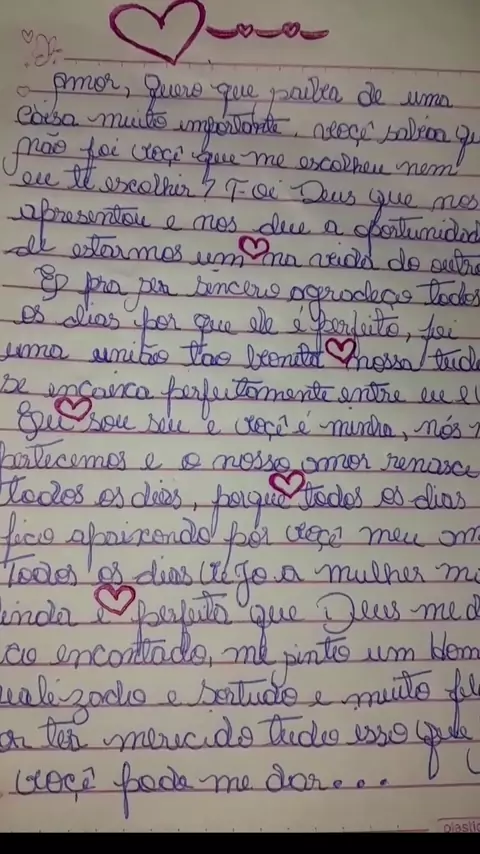 Amor, Quero que saiba de uma
coisa muito importante, voçê sabia qu
não foi voçê que me escolheu nem
eu te escolhir? Foi Deus que nos
apresentou e nos deu a oportunidad
de estarmos um na vida do outro
E pra ser sincero agradeço todos
os dias por que ele é perfeito, foi
uma união tão bonita nossa tudo
se encaixa perfeitamente entre eu e
Eu sou seu e voçê é minha, nós
pertecemos e o nosso amor renasce
todos os dias, porque todos os dias
fico apaixondo por voçê meu am
Todos os dias vejo a mulher m
linda e perfeita que Deus me d
tão encantado, me sinto um Hom
ualizado e sortudo e muito fel
or ter merecido tudo isso que
voçê pode me dar...
plasti